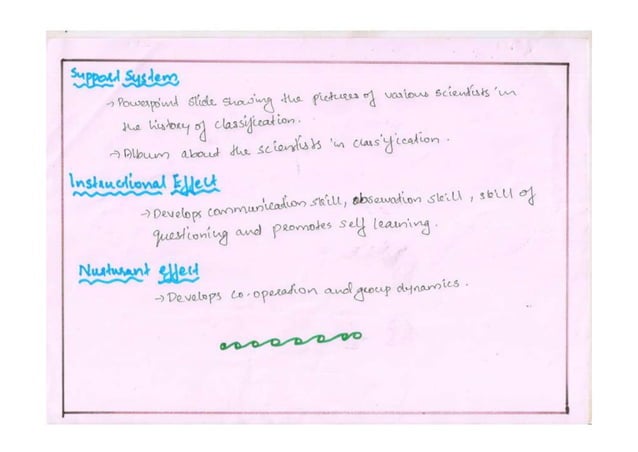 Support System
→ Powerpoint slide showing the pictures of various scientists in
the history of classification.
→ Album about the scientists in classification.
Instructional Effect
→ Develops communication skill, observation skill, skill of
questioning and promotes self learning.
Nurturant effect
→ Develops co-operation and group dynamics.